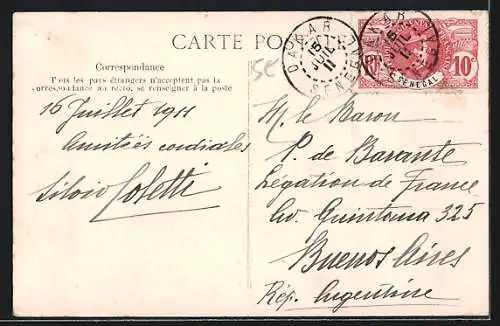 CARTE POSTALE
Correspondance
Tous les pays étrangers n'acceptent pas la
correspondance au recto, se renseigner à la poste
DAKAR
15
JUIL
11
SENEGAL
DAKAR
15
JUIL
11
SENEGAL
10c
SÉNÉGAL
5E
16 Juillet 1911
Amitiés cordiales
Silvio Coletti
M. le Baron
P. de Barante
Légation de France
Av. Quintana 325
Buenos Aires
Rép. Argentine